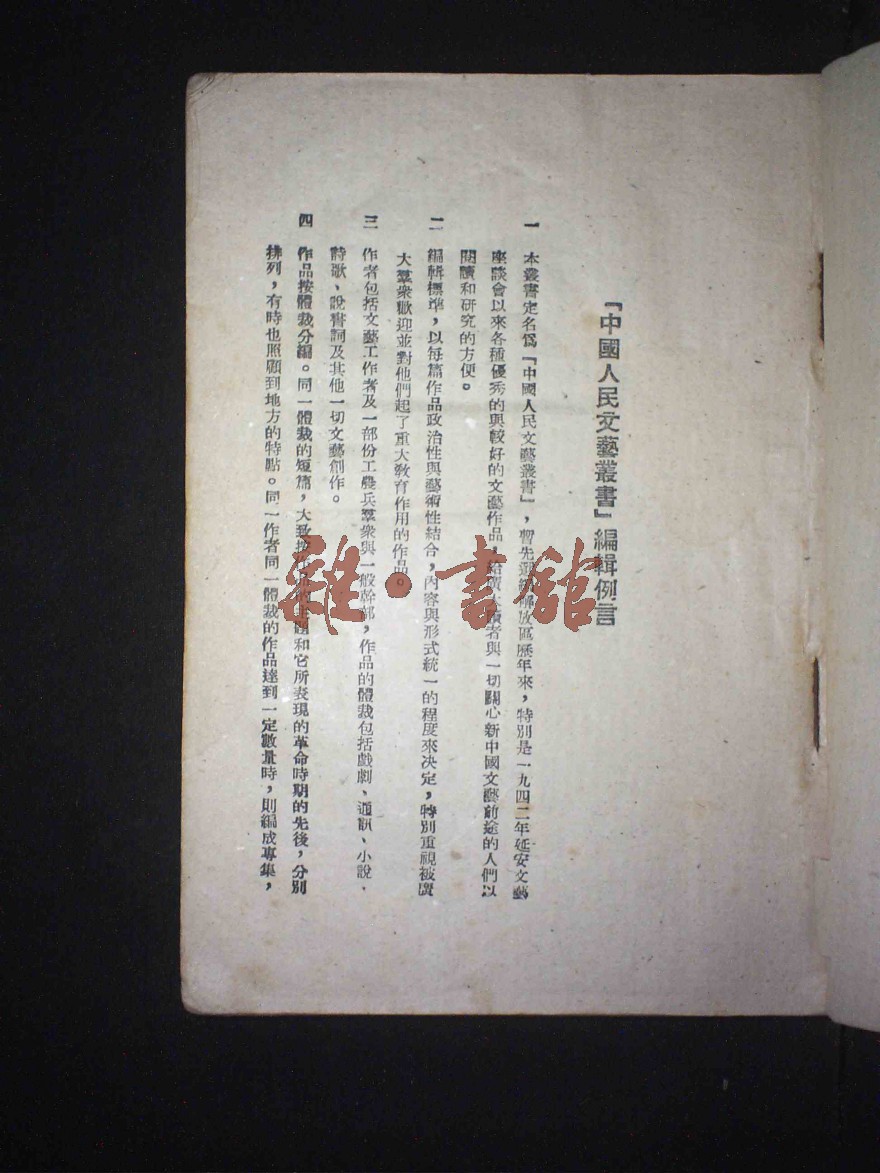 『中國人民文藝叢書』編輯例言
一 本叢書定名爲『中國人民文藝叢書』，暫先選編解放區歷年來，特別是一九四二年延安文藝
座談會以來各種優秀的與較好的文藝作品，給廣大讀者與一切關心新中國文藝前途的人們以
閱讀和研究的方便。
二 編輯標準，以每篇作品政治性與藝術性結合，內容與形式統一的程度來決定，特別重視被廣
大羣衆歡迎並對他們起了重大教育作用的作品。
三 作者包括文藝工作者及一部份工農兵羣衆與一般幹部，作品的體裁包括戲劇、通訊、小說、
詩歌、說書詞及其他一切文藝創作。
四 作品按體裁分編。同一體裁的短篇，大致按作品的主題和它所表現的革命時期的先後，分別
排列，有時也照顧到地方的特點。同一作者同一體裁的作品達到一定數量時，則編成專集，
雜·書館